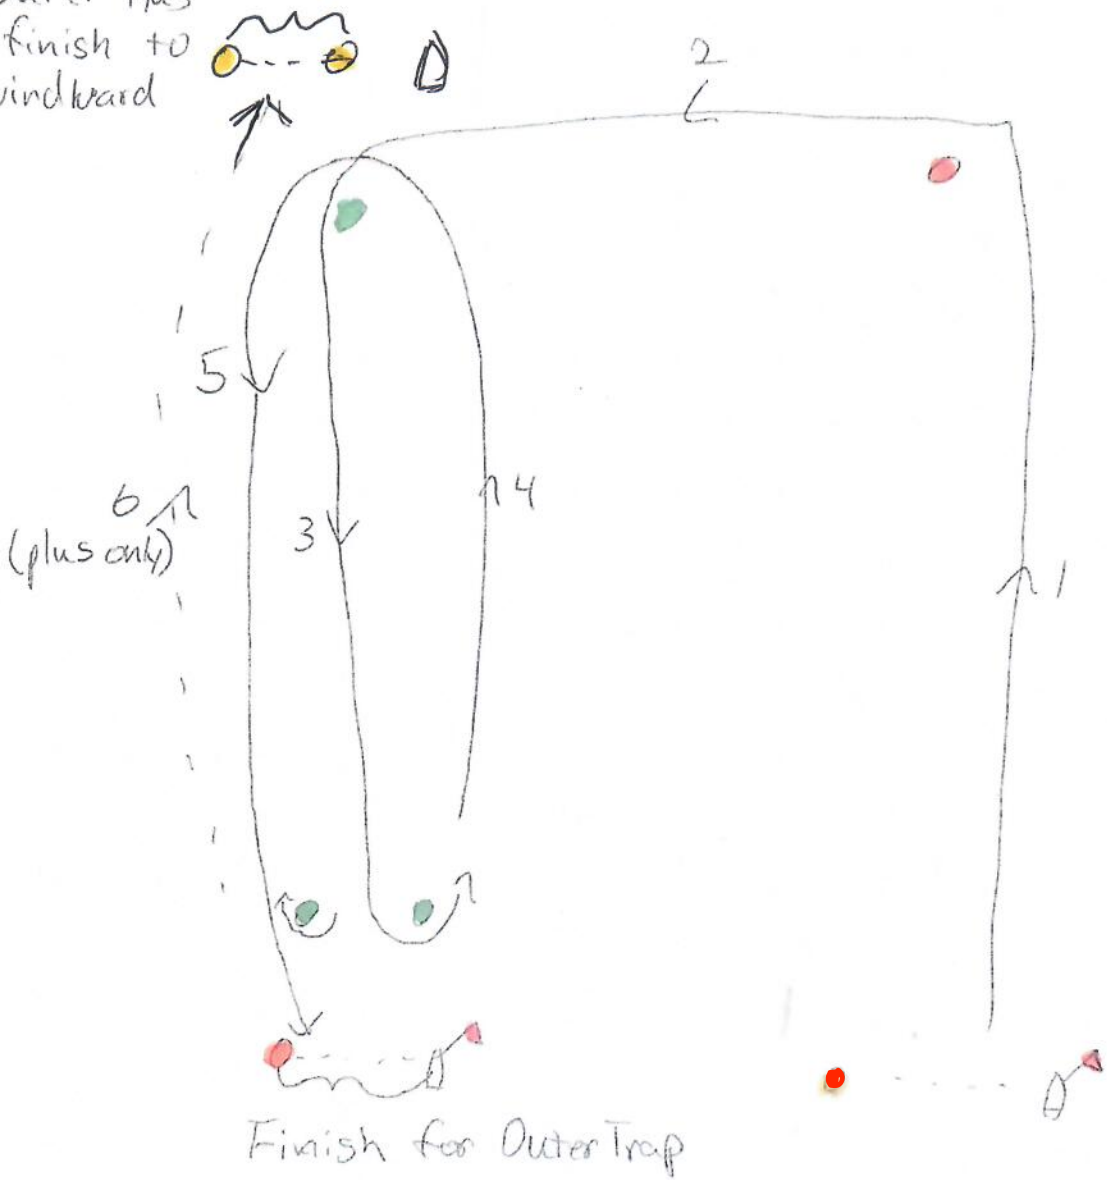 finish to
windward
2
5
6
(plus only)
3
4
1
Finish for Outer Trap